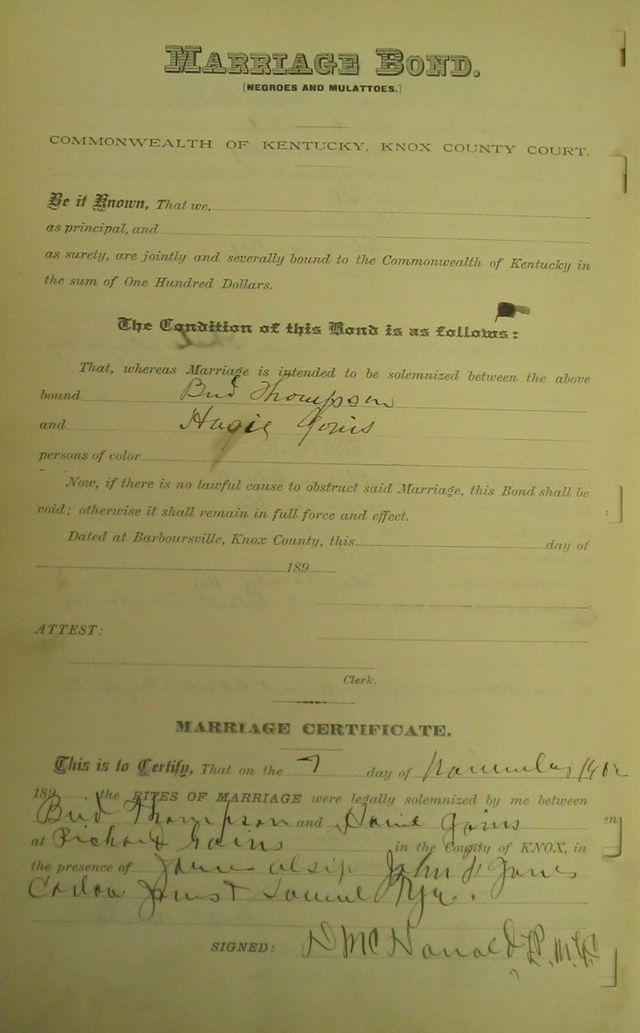 MARRIAGE BOND.
[NEGROES AND MULATTOES.]
COMMONWEALTH OF KENTUCKY, KNOX COUNTY COURT.
Be it Known, That we,
as principal, and
as surety, are jointly and severally bound to the Commonwealth of Kentucky in
the sum of One Hundred Dollars.
The Condition of this Bond is as follows:
That, whereas Marriage is intended to be solemnized between the above
bound Bud Thompson
and
persons of color
Now, if there is no lawful cause to obstruct said Marriage, this Bond shall be
void; otherwise it shall remain in full force and effect.
Dated at Barboursville, Knox County, this day of
189
ATTEST:
Clerk.
MARRIAGE CERTIFICATE.
This is to Certify, That on the 7 day of 1902
189 , the RITES OF MARRIAGE were legally solemnized by me between
Bud Thompson and
at Richard in the County of KNOX, in
the presence of John
Samuel
SIGNED: